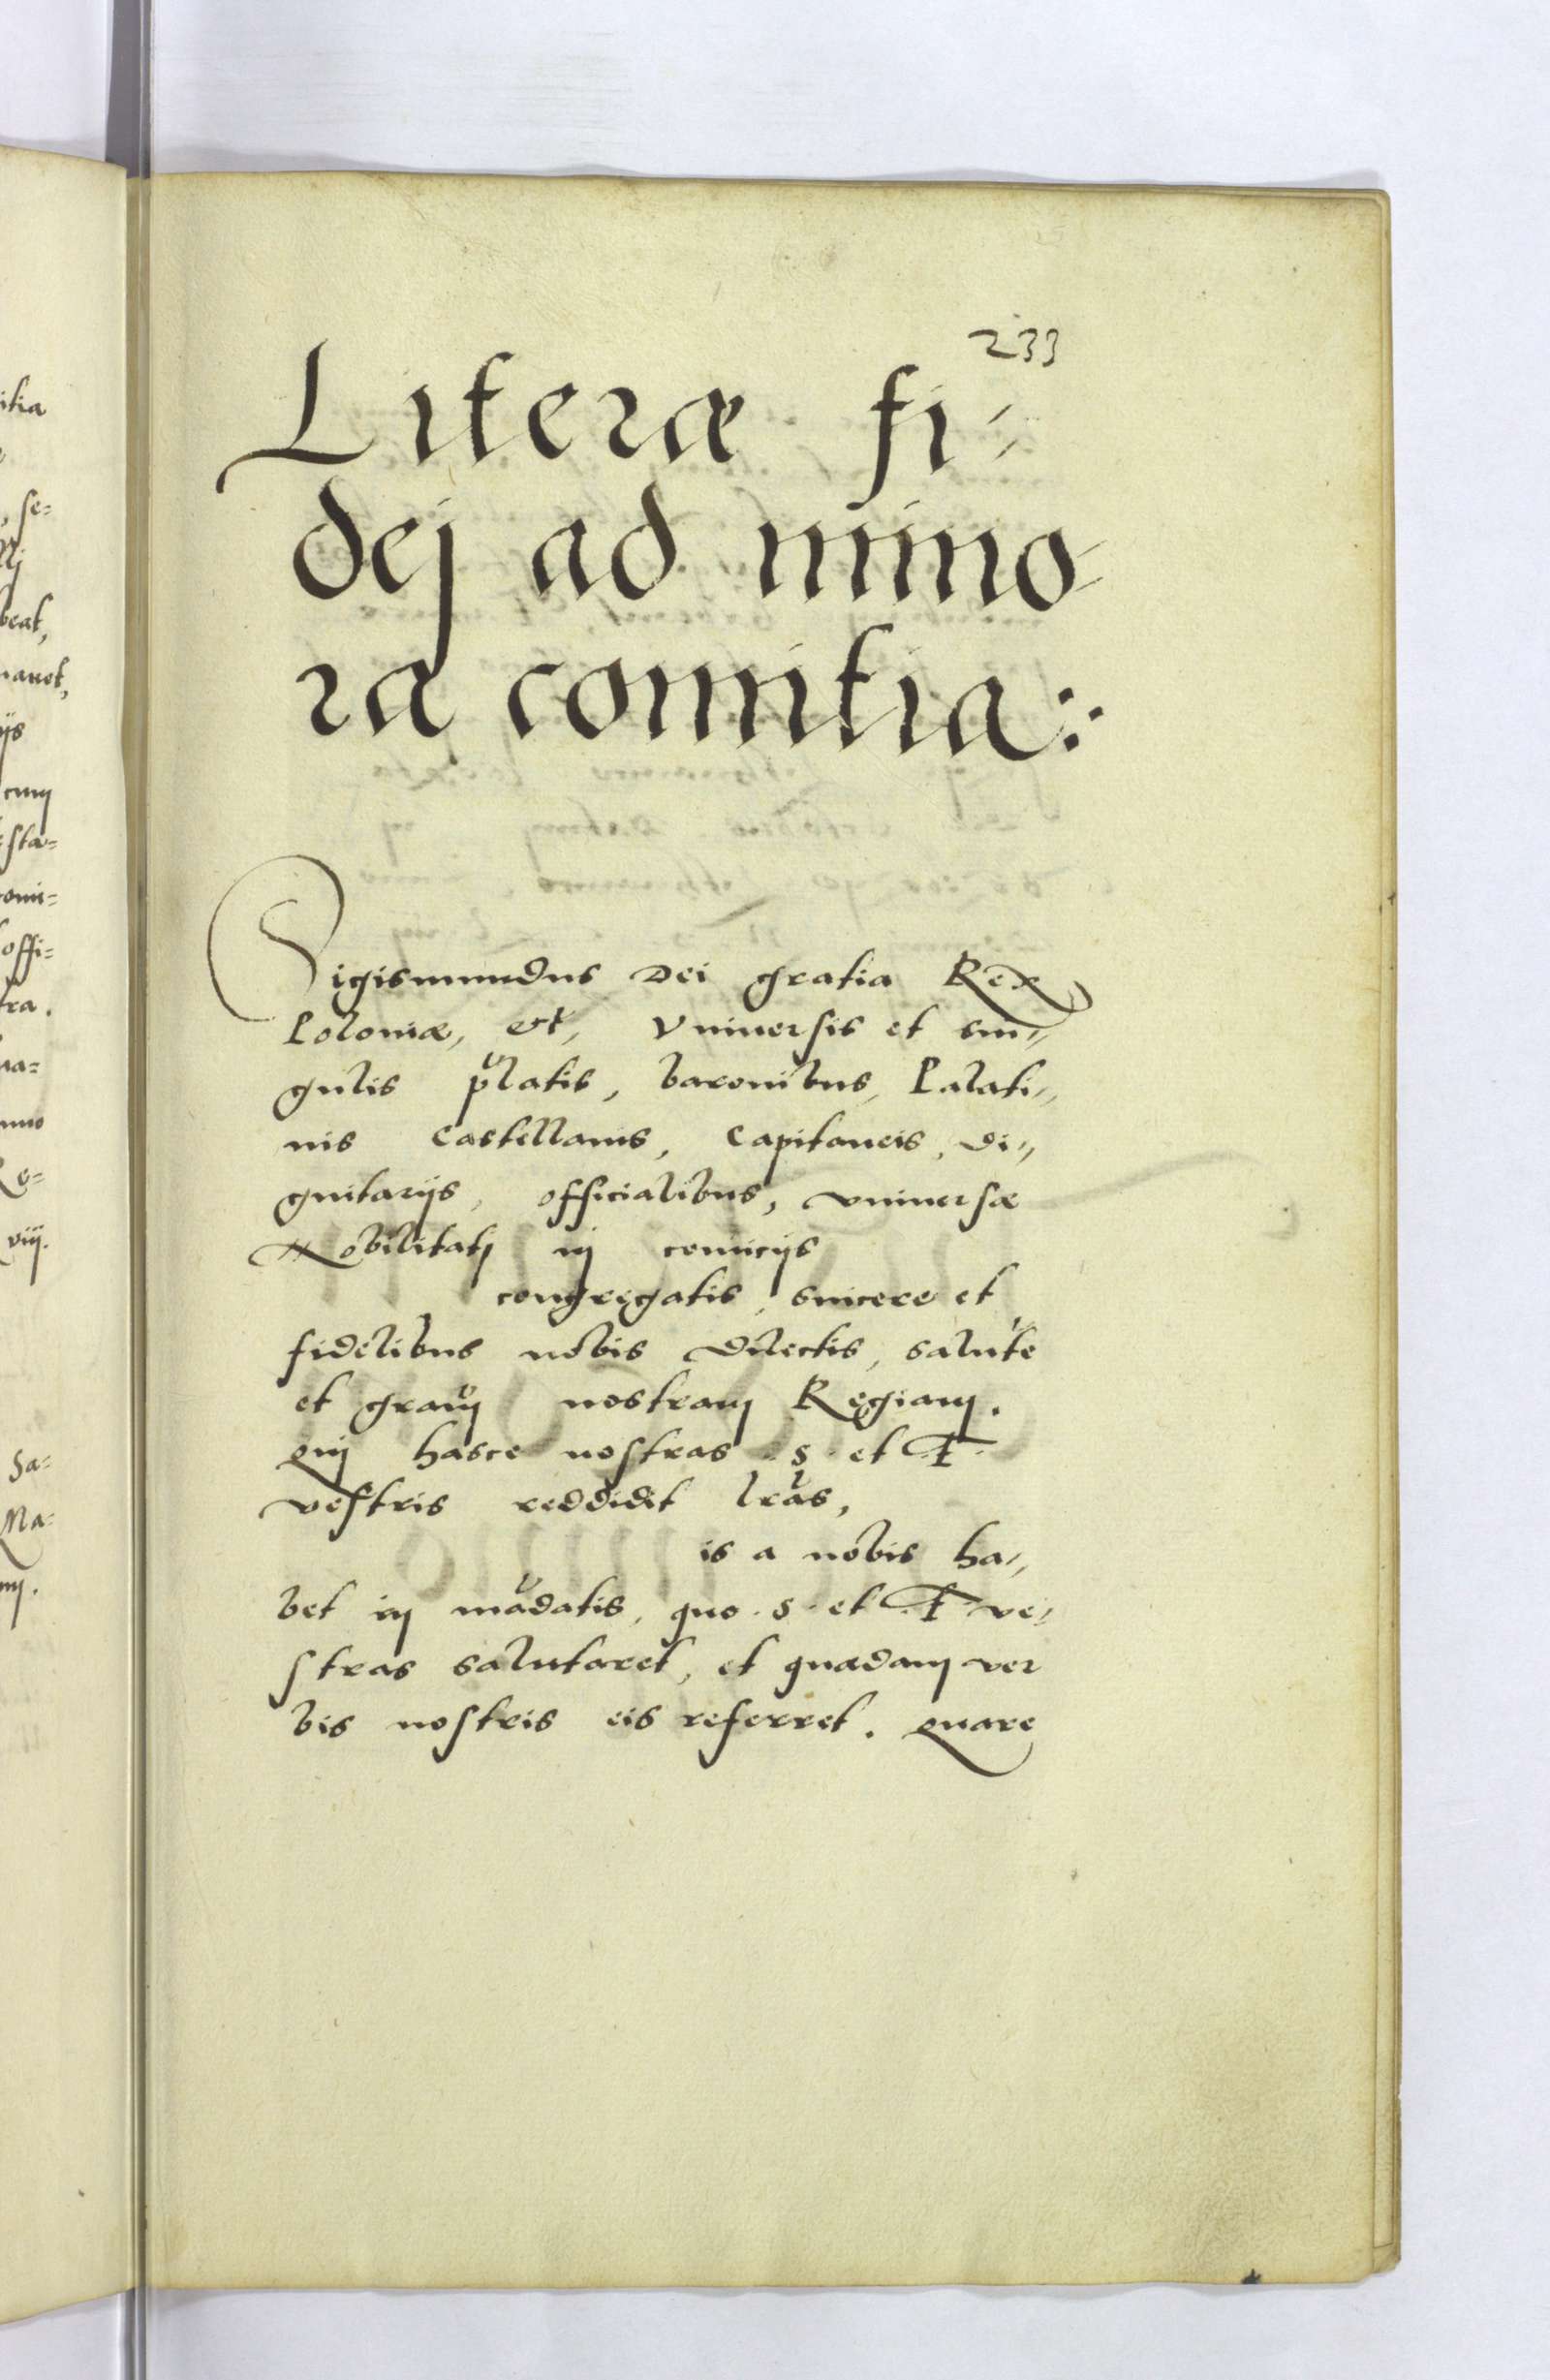 233
Literæ fi=
dej ad mino-
ra comitia:
Sigismundus Dei gratia Rex
Poloniæ, etc, Vniuersis et sin=
gulis p̃latis, baronibus, Palati=
nis Castellanis, Capitaneis, di=
gnitarijs, officialibus, vniuersæ
Nobilitatj in comicijs
congregatis, sincere et
fidelibus nobis dilectis, salutẽ
et gra͂m nostram Regiam.
Quj hasce nostras .S. et .F.
vestris reddidit lr̃as,
is a nobis ha=
bet in mãdatis, quo .S. et .F. ve=
stras salutaret, et quædam ver
bis nostris eis referret. Quare